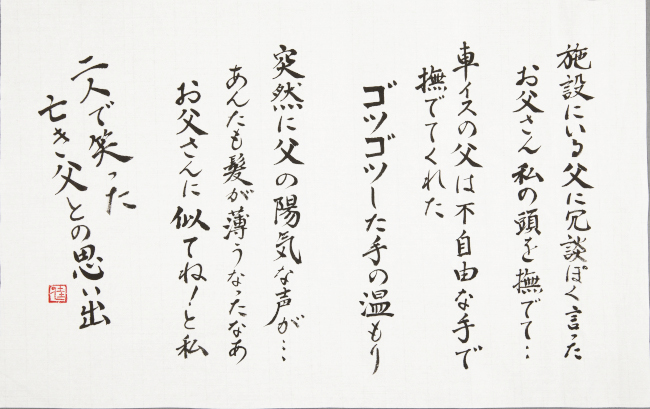 施設にいる父に冗談ぽく言った
お父さん私の頭を撫でて…
車イスの父は不自由な手で
撫でてくれた
ゴツゴツした手の温もり
突然に父の陽気な声が…
あんたも髪が薄うなったなあ
お父さんに似てね!と私
二人で笑った
亡き父との思い出